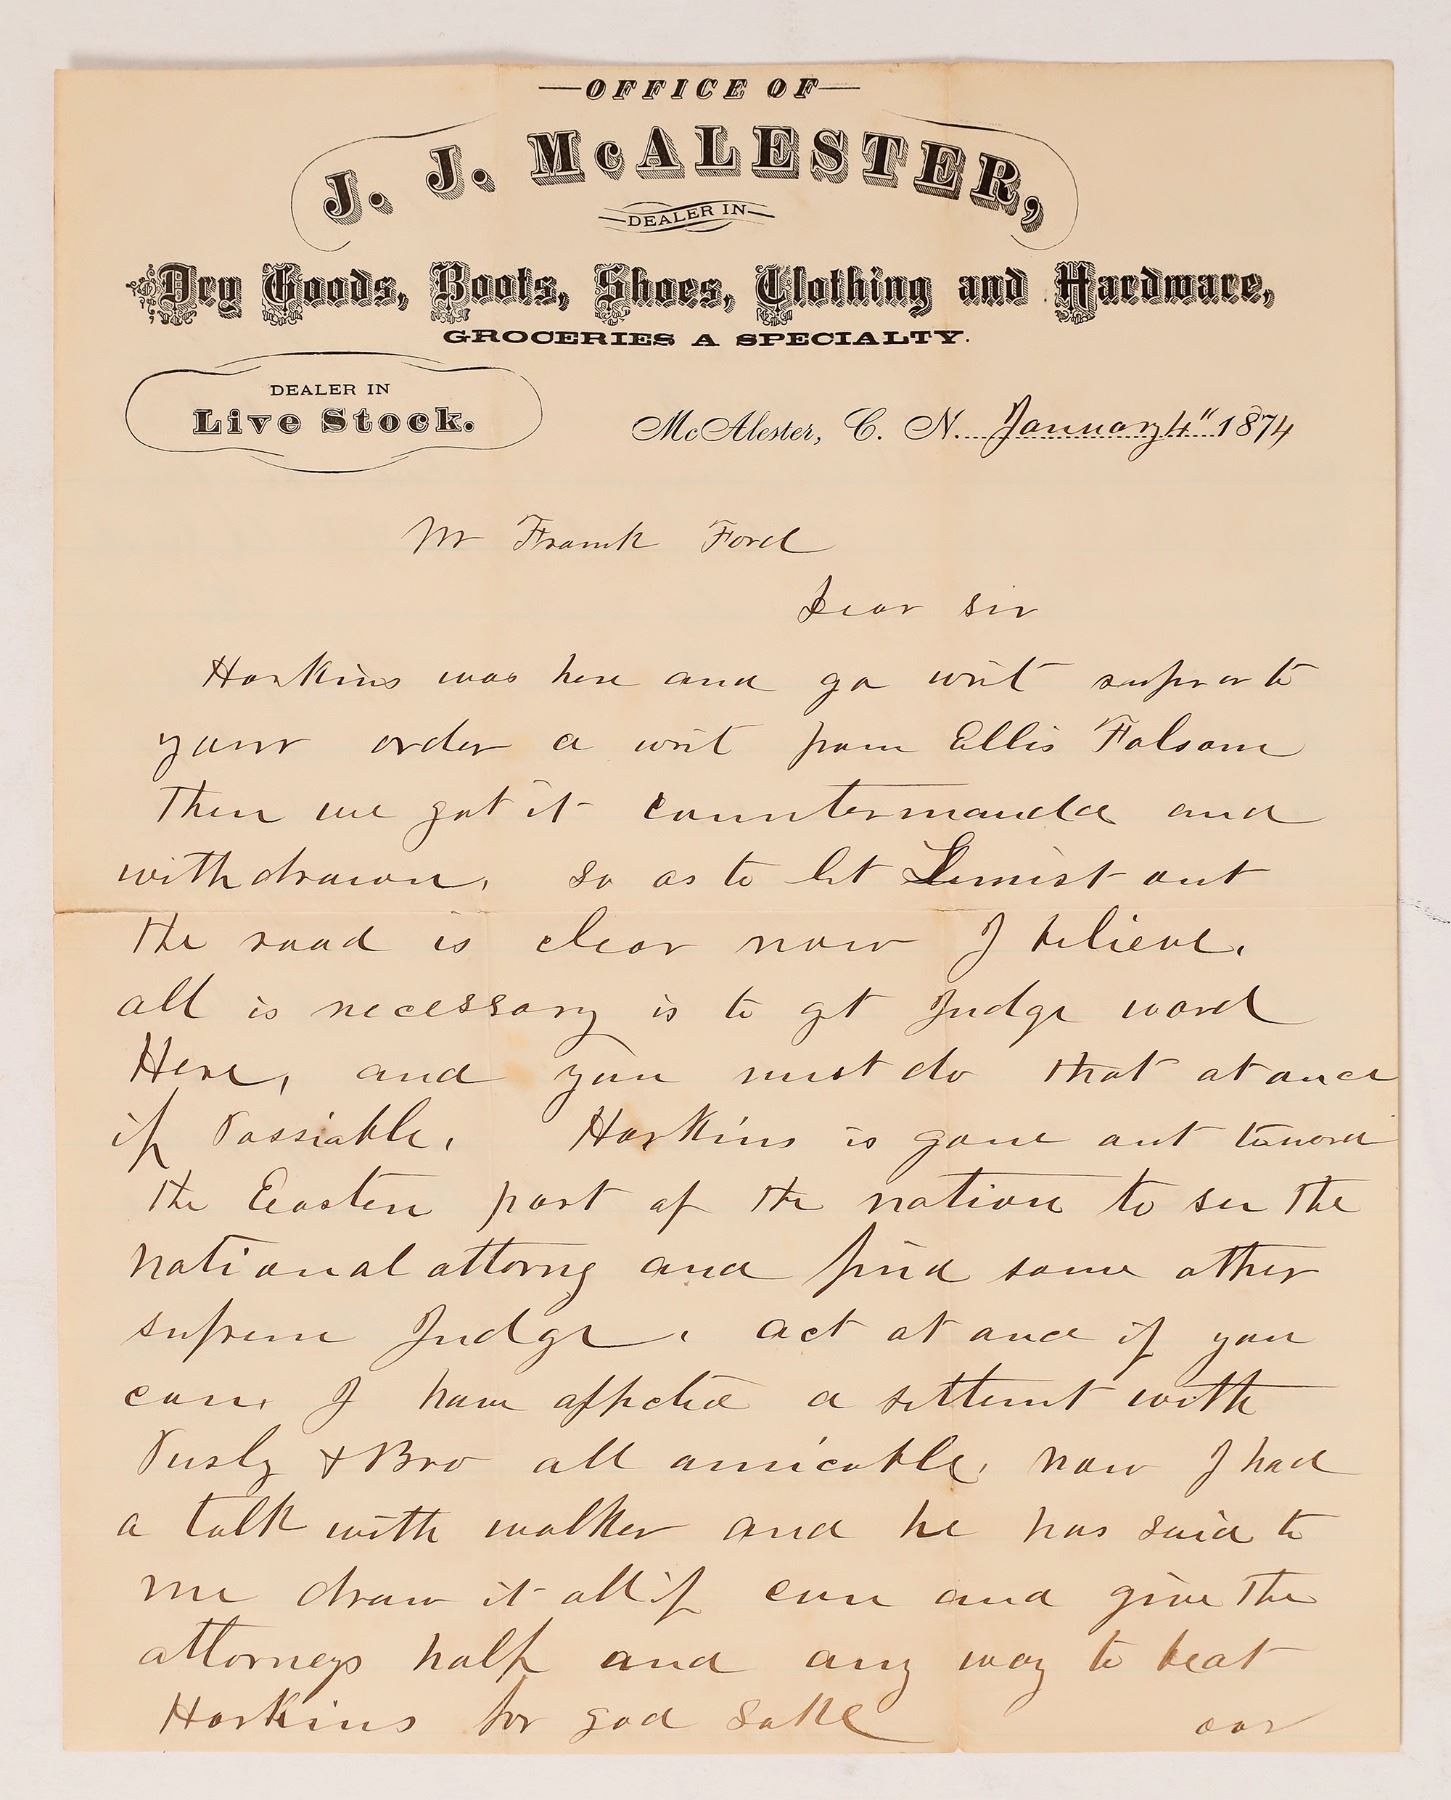 OFFICE OF
J. J. McALESTER,
DEALER IN
Dry Goods, Boots, Shoes, Clothing and Hardware,
GROCERIES A SPECIALTY.
DEALER IN
Live Stock.
McAlester, C. N. January 4" 1874
Mr Frank Ford
Dear sir
Harkins was here and go writ
your order a writ from Ellis Folsom
Then we got it countermanded and
withdrawn, so as to let out
the road is clear now I believe.
all is necessary is to get Judge word
Here, and you must do that at once
if Possiable. Harkins is gone out toward
the Eastern part of the nation to see the
national attorny and find some other
supreme Judge, act at once if you
can, I have affected a settlemt with
Pusly & Bro all amicable, now I had
a talk with walker and he has said to
me draw it all if can and give the
attorneys half and any way to beat
Harkins for god sake